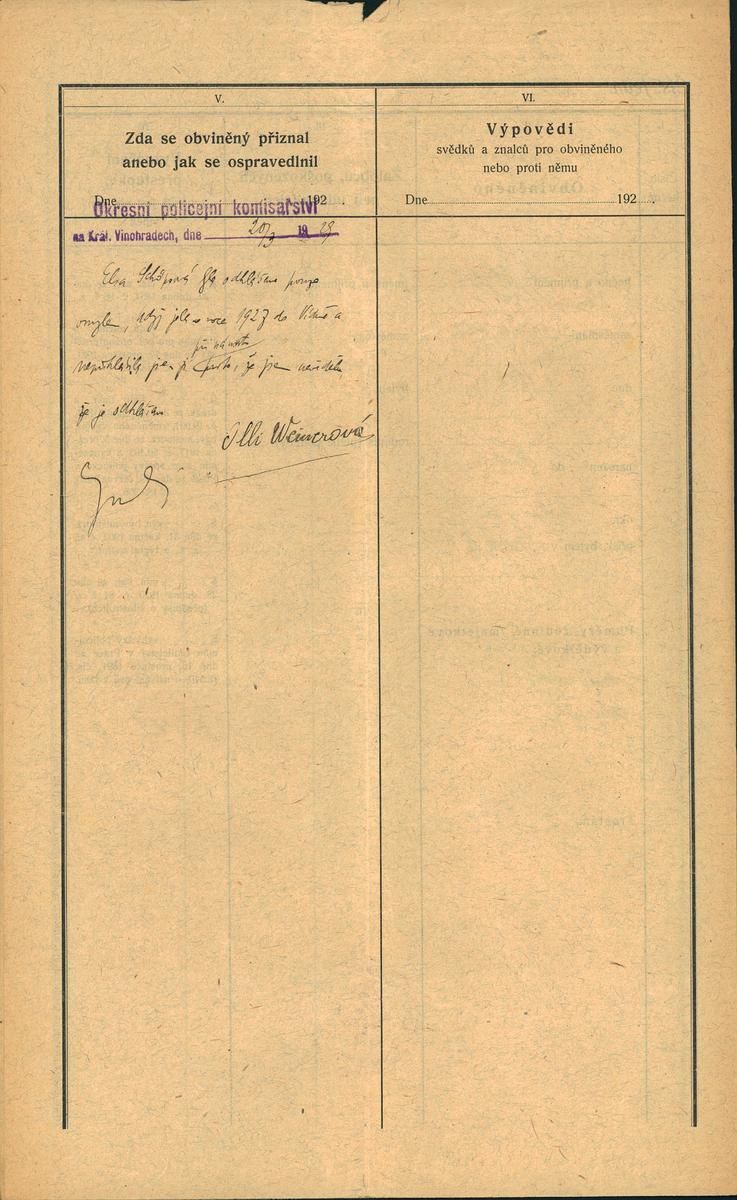 V.
Zda se obviněný přiznal
anebo jak se ospravedlnil
Dne 192
Okresní policejní komisařství
na Král. Vinohradech, dne 20/3 19 29
Elsa byla odhlášena pouze
omylem, když jela v roce 1927 do Vídně a
při návratu
nepřihlásila jsem ji proto, že jsem nevěděla
že je odhlášena
Olli Weinerová
VI.
Výpovědi
svědků a znalců pro obviněného
nebo proti němu
Dne 192